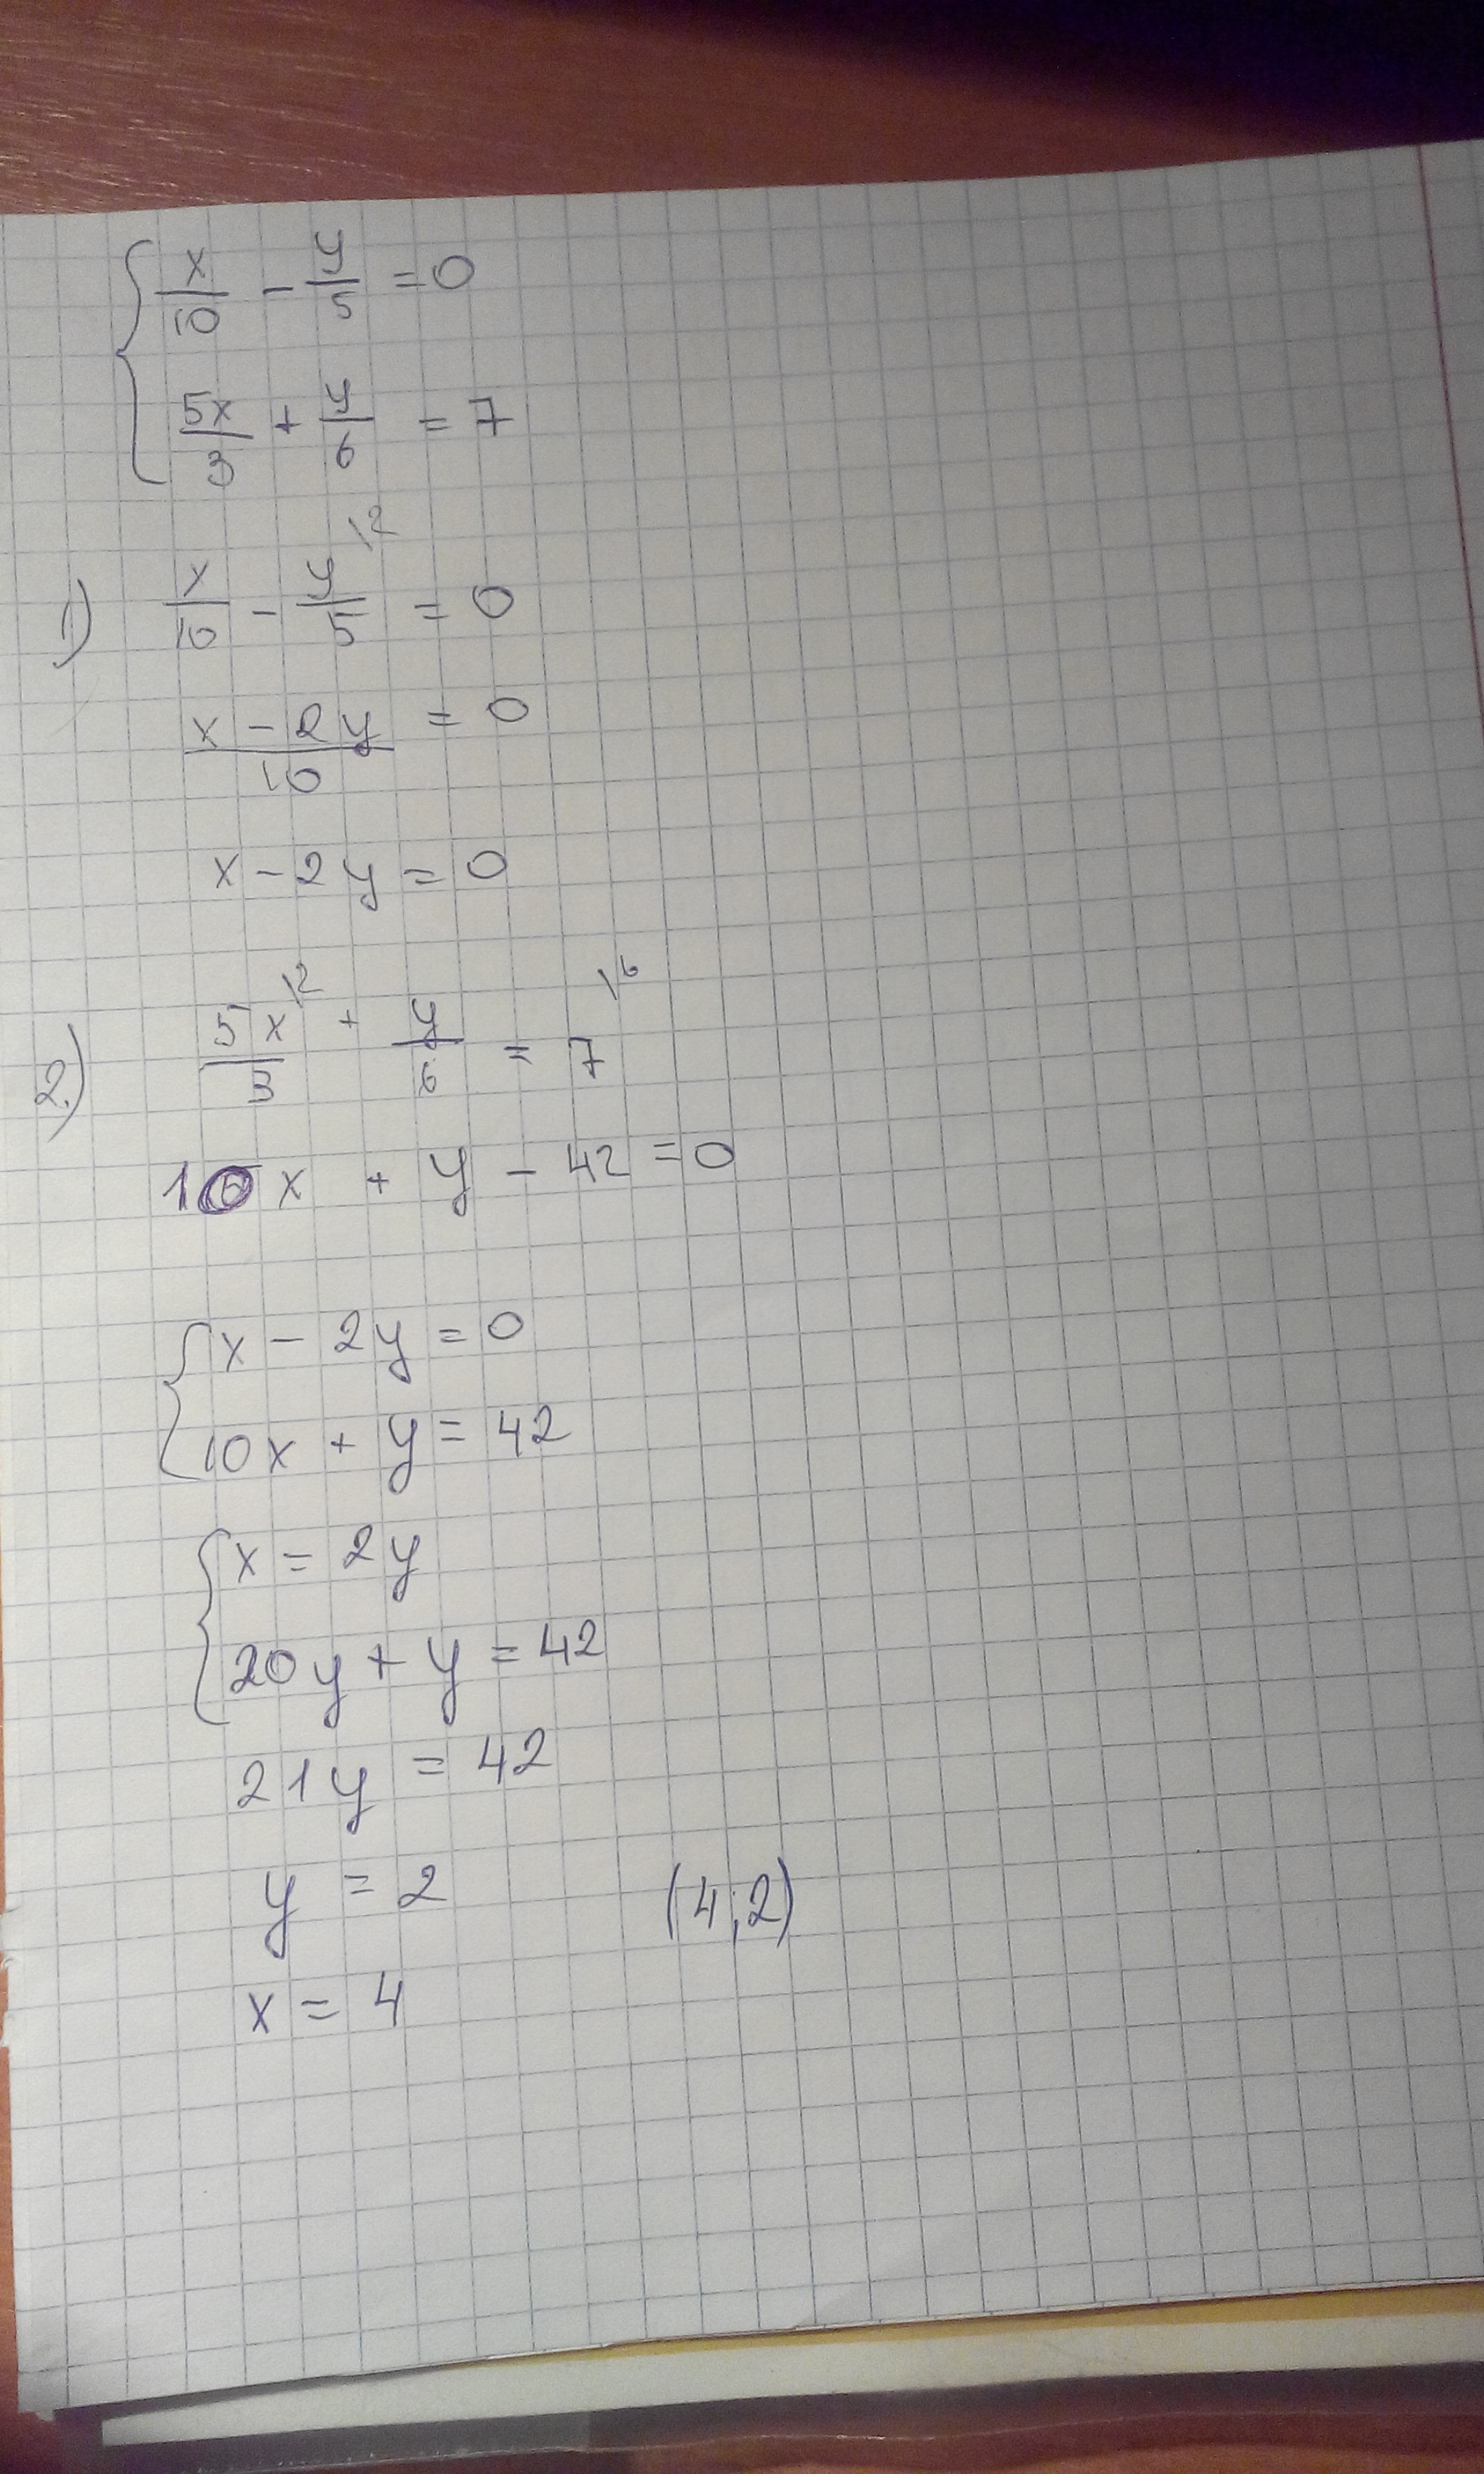 { x/10 - y/5 = 0
5x/3 + y/6 = 7
1) x/10 - y/5 \2 = 0
x - 2y/10 = 0
x - 2y = 0
2) 5x/3 \2 + y/6 = 7 \6
10x + y - 42 = 0
{ x - 2y = 0
10x + y = 42
{ x = 2y
20y + y = 42
21y = 42
y = 2 (4;2)
x = 4